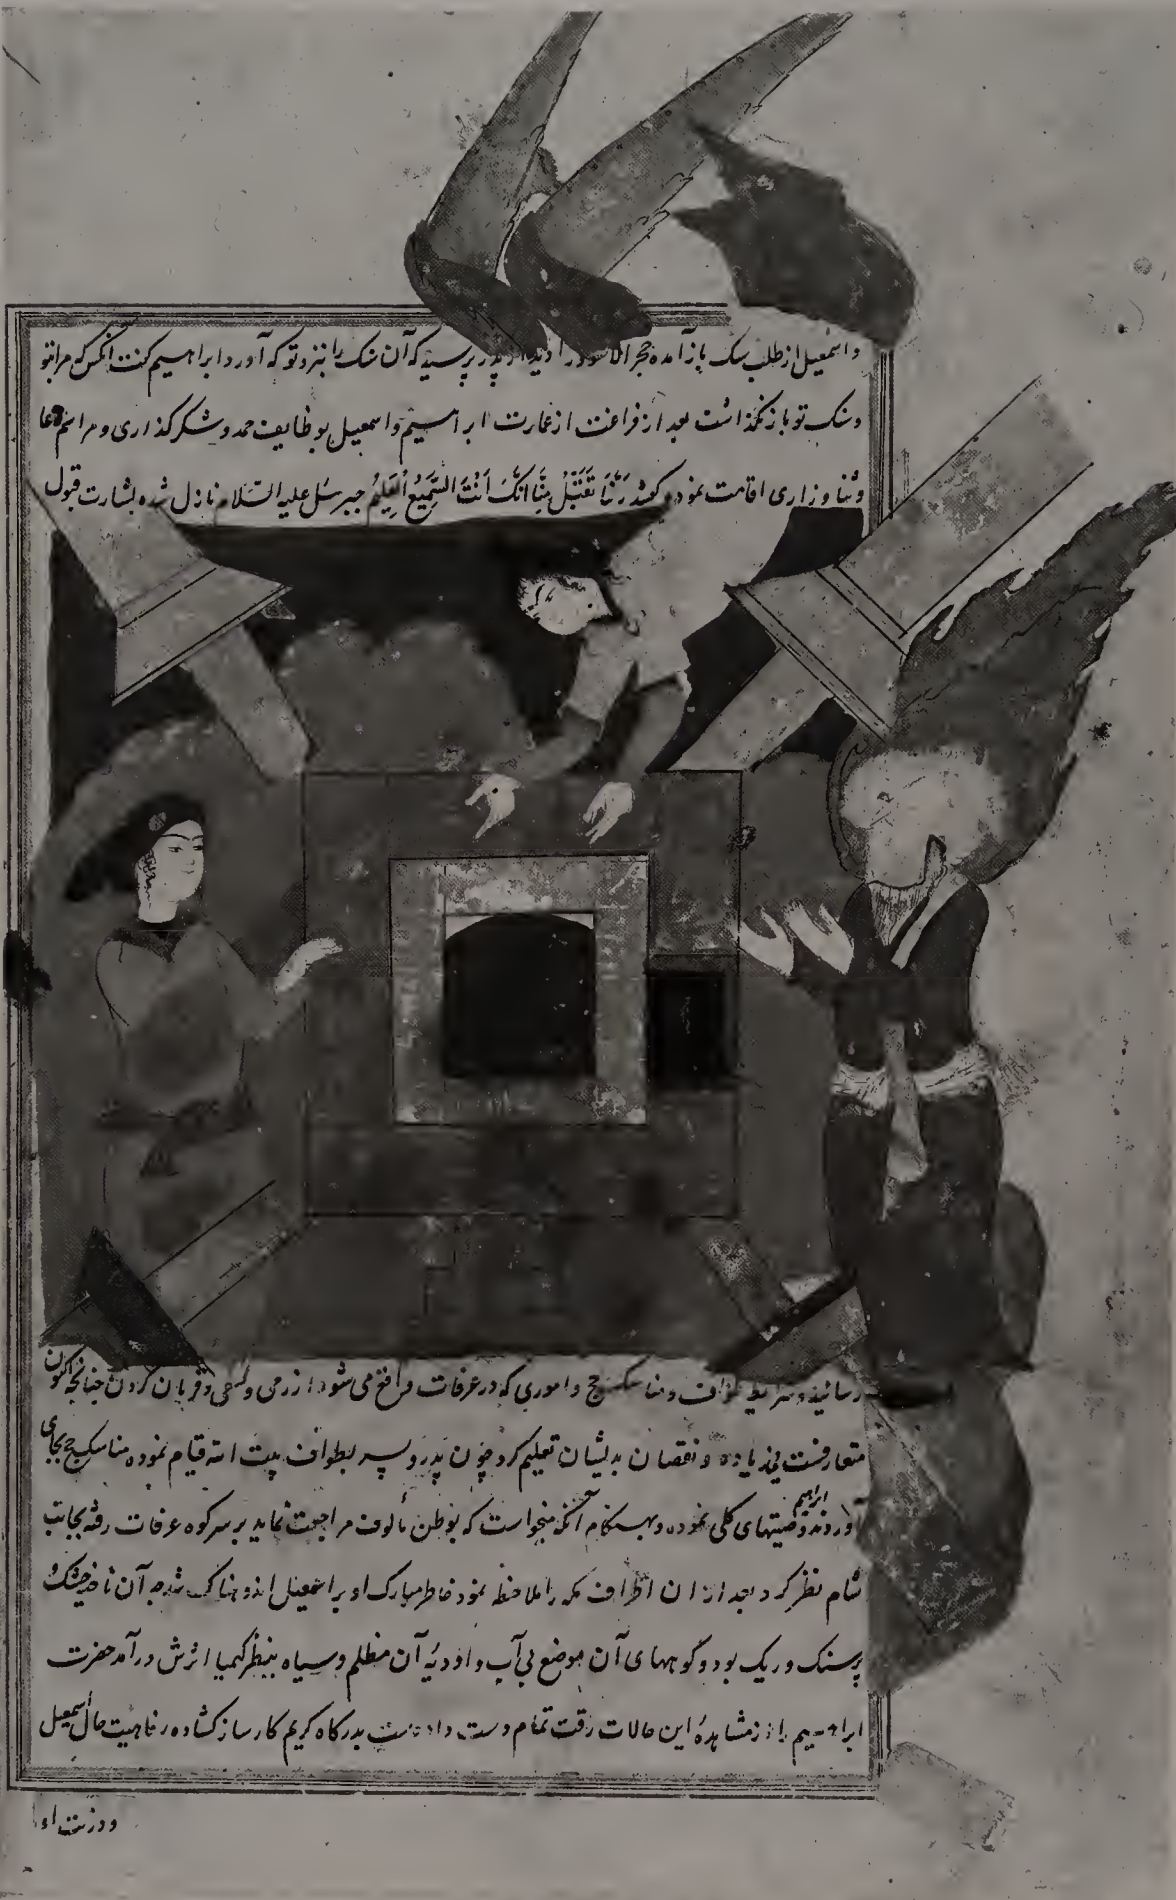 و اسمعیل از طلب سنک باز آمده حجر الاسود را دید از پدر پرسید که آن سنک را بنزد تو که آورد ابراهیم کفت انکس که مرا بتو
و سنک تو باز نکذاشت بعد از فراغت از عمارت ابراهیم و اسمعیل بوظایف حمد و شکر کذاری و مراسم دعا
و ثنا و زاری اقامت نمودند کفتند رَبَّنَا تَقَبَّلْ مِنَّا اِنَّکَ اَنْتَ السَّمِیعُ الْعَلِیمُ جبرئیل علیه السلام نازل شده بشارت قبول
رسانید و شرایط طواف و مناسک حج و اموری که در عرفات واقع می شود از رمی و سعی و قربان کردن چنانچه اکنون
متعارفست بی زیاده و نقصان بدیشان تعلیم کرد چون پدر و پسر بطواف بیت الله قیام نموده مناسک حج بجای
آوردند ابراهیم وصیتهای کلی نموده و بهنکام آنکه میخواست که بوطن مألوف مراجعت نماید بر سر کوه عرفات رفته بجانب
شام نظر کرد بعد از ان اطراف مکه را ملاحظه نمود خاطر مبارک او بر اسمعیل اندوهناک شده چه آن ناحیه خشک و
پر سنک و ریک بود و کوههای آن موضع بی آب و اودیهٔ آن مظلم و سیاه بنظر کیمیا اثرش درآمد حضرت
ابراهیم را از مشاهدهٔ این حالات رقت تمام دست داد دست بدرکاه کریم کارساز کشاده رفاهیت حال اسمعیل
و ذریت او